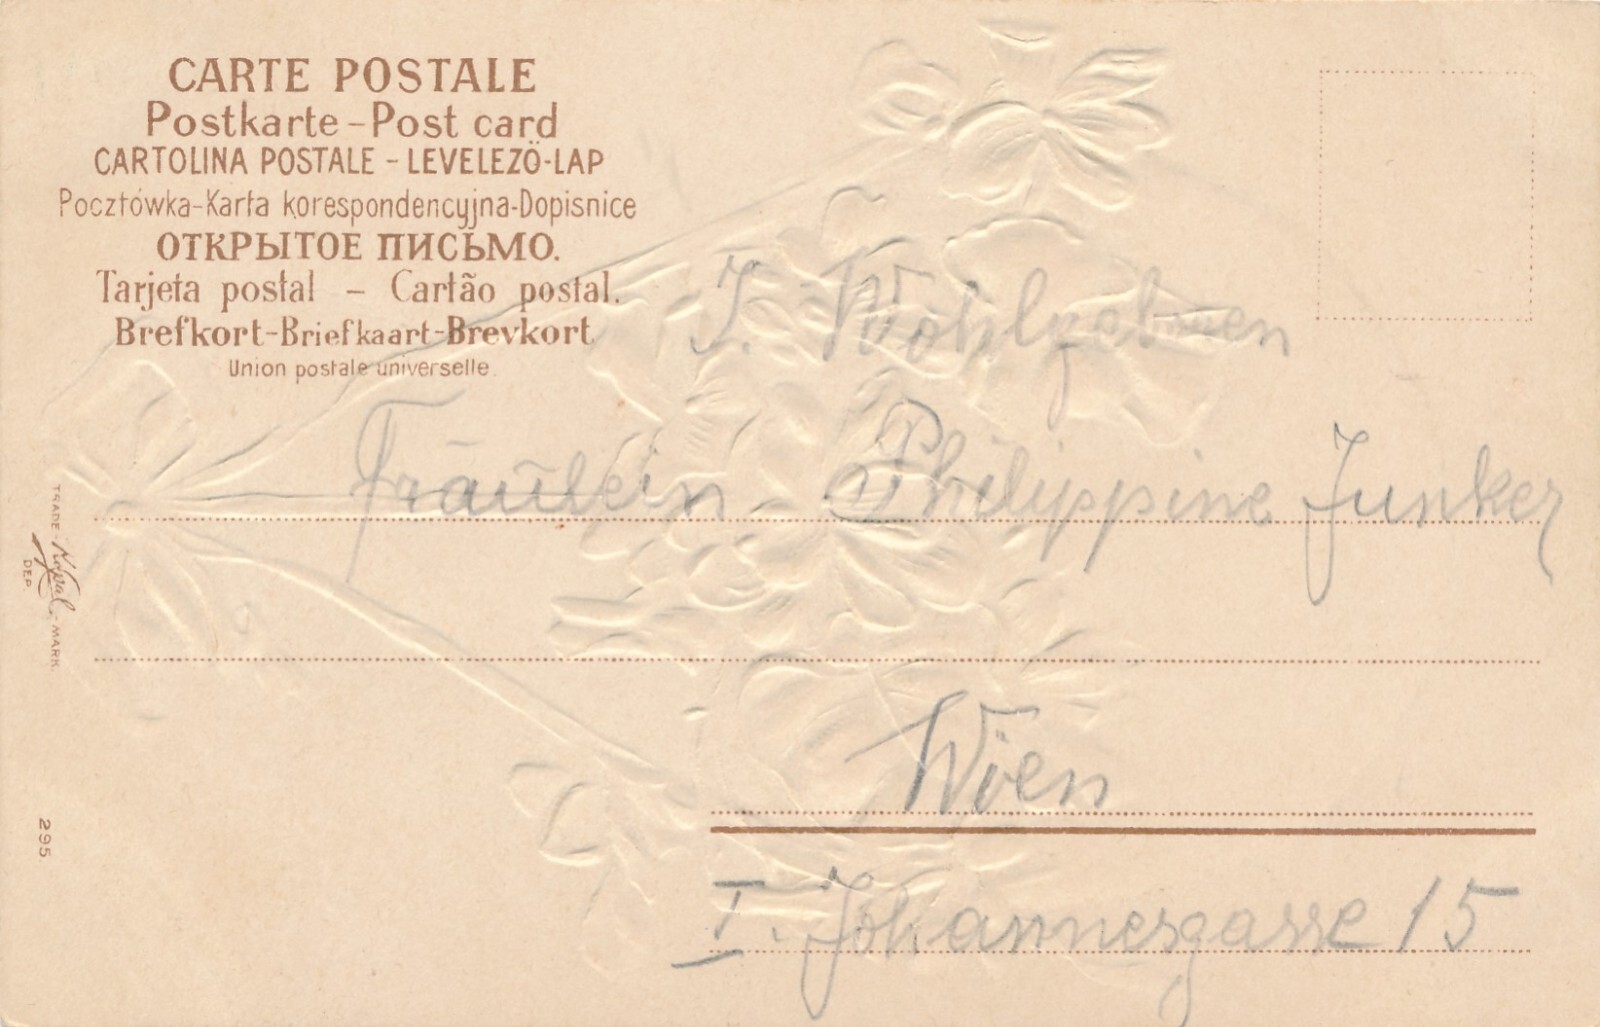 CARTE POSTALE
Postkarte-Post card
CARTOLINA POSTALE - LEVELEZÖ-LAP
Pocztówka-Karta korespondencyjna-Dopisnice
ОТКРЫТОЕ ПИСЬМО.
Tarjeta postal - Cartão postal.
Brefkort-Briefkaart-Brevkort
Union postale universelle.
Fräulein Philippine Junker
Wien
I. Johannesgasse 15
TRADE-
MARK.
DEP.
295